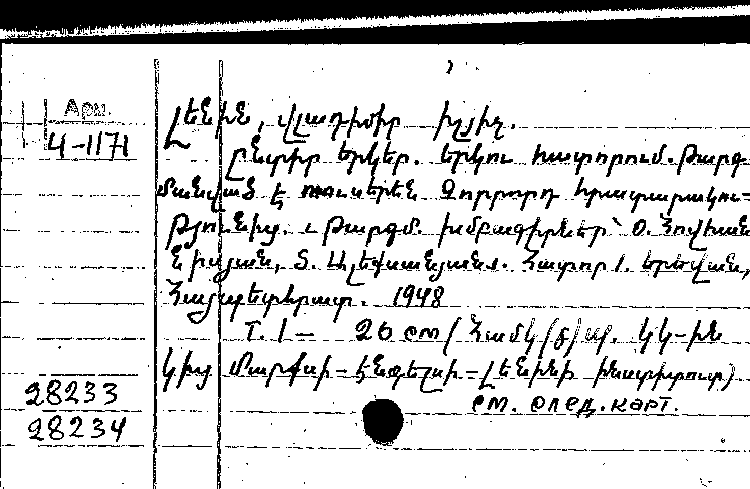 Арм.
Ч-1171
Լենին, Վլադիմիր Իլյիչ.
Ընտիր երկեր. երկու հատորում. Թարգ
մանված է ռուսերեն Չորրորդ հրատարակու-
թյունից. Թարգմ. խմբագիրներ՝ Օ. Հովհան
նիսյան, Տ. Ալեքսանյան. Հատոր 1. Երևան,
Հայպետհրատ. 1948
Т. 1 — 26 см (Համկ(բ)կպ. ԿԿ-ին
կից Մարքսի-Էնգելսի-Լենինի ինստիտուտ)
см. след. карт.
28233
28234